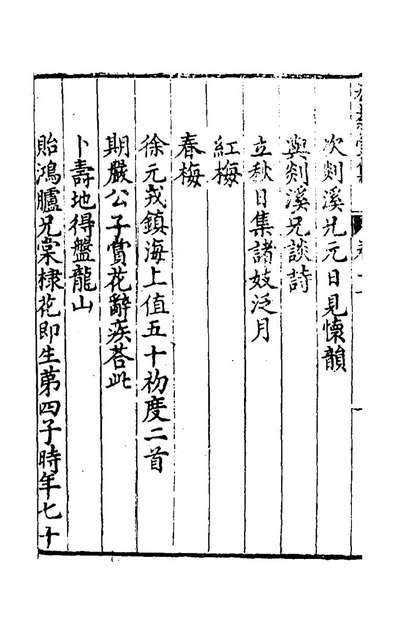 次剡溪兄元日見懷韻
與剡溪兄談詩
立秋日集諸妓泛月
紅梅
春梅
徐元戎鎮海上值五十初度二首
期嚴公子賞花辭疾荅此
卜壽地得盤龍山
貽鴻臚兄棠棣花即生第四子時年七十